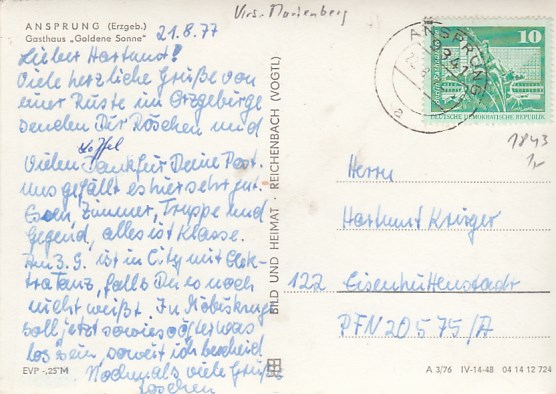 Krs. Marienberg
ANSPRUNG (Erzgeb.)
Gasthaus „Goldene Sonne"
21.8.77
Lieber Hartmut!
Viele herzliche Grüße von
einer Rüste im Erzgebirge
senden Dir Röschen und
Löffel
Vielen Dank für Deine Post.
Uns gefällt es hier sehr gut.
Essen, Zimmer, Truppe und
Gegend, alles ist Klasse.
Am 3.9. ist in City mit Elek-
tra Tanz, falls Du es noch
nicht weißt. In Möbiskruge
soll jetzt sowieso öfter was
los sein, soweit ich bescheid
Nochmals viele Grüße
Röschen
EVP -,25 M
BILD UND HEIMAT · REICHENBACH (VOGTL)
ANSPRUNG
9341
a
10
DEUTSCHE DEMOKRATISCHE REPUBLIK
1843
1,-
Herrn
Hartmut Krüger
122 Eisenhüttenstadt
PFN 20575/A
A 3/76 IV-14-48 04 14 12 724